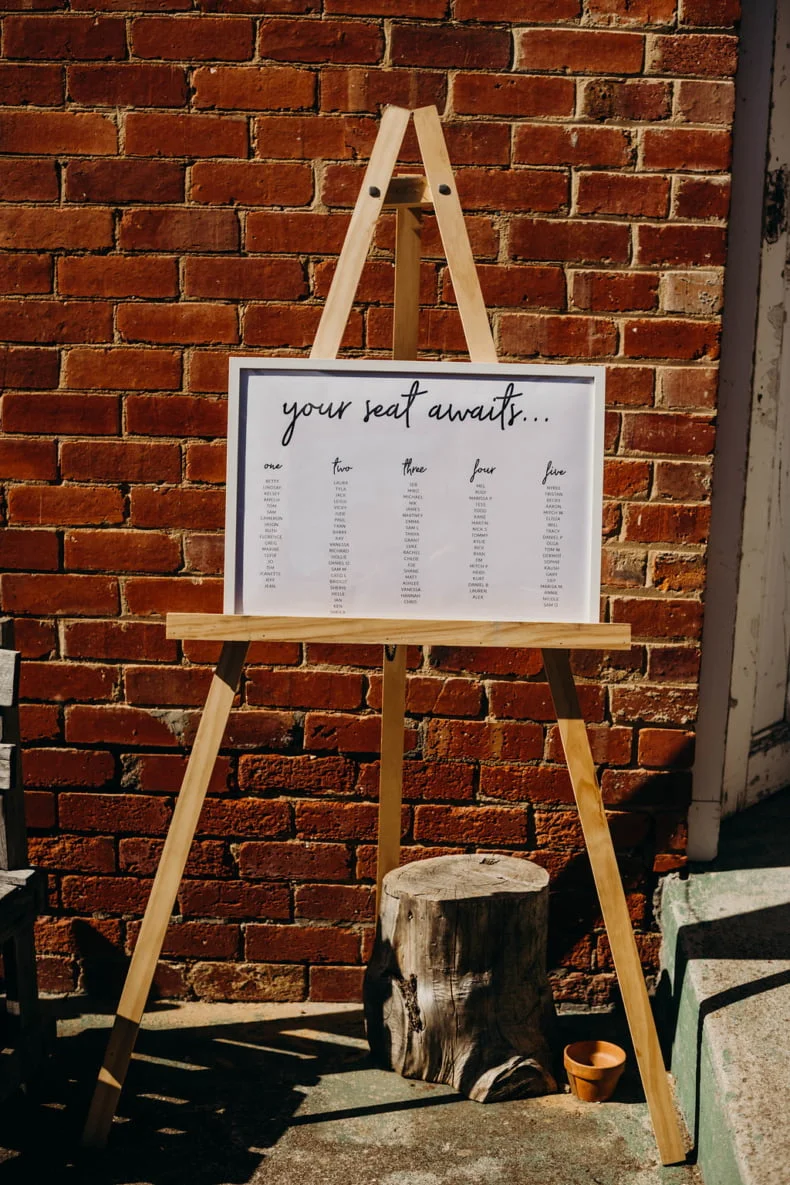 your seat awaits...
one
BETTY
LINDSAY
KELSEY
AMELIA
TOM
SAM
CAMERON
JASON
RUTH
FLORENCE
GREG
MAXINE
CLYDE
JO
TIM
JEANETTE
JEFF
JEAN
two
LAURA
TYLA
JACK
LEIGH
VICKI
JUDE
PAUL
FYNN
BARRY
KAY
VANESSA
RICHARD
HOLLIE
DANIEL O
SAM W
SHERYL
HELLE
IAN
KEN
SHEILA
three
SEB
MIKO
MICHAEL
NIK
JAMES
WHITNEY
EMMA
SAM L
THERA
GRANT
LUKE
RACHEL
CHLOE
ZOE
SHANE
MATT
ASHLEE
VANESSA
HANNAH
CHRIS
four
MEL
RUDI
MARISSA P
TESS
TODD
KANE
MARTIN
NICK S
TOMMY
KYLIE
NICK
RYAN
JIM
MITCH F
HEIDI
KURT
DANIEL B
LAUREN
ALEX
five
TRISTAN
BECKS
AARON
MITCH W
ELOISA
WILL
TRACY
DANIEL P
OLGA
TOM W
SOPHIE
KALISH
GARY
MARISA M
ANNIE
NICOLE
SAM O